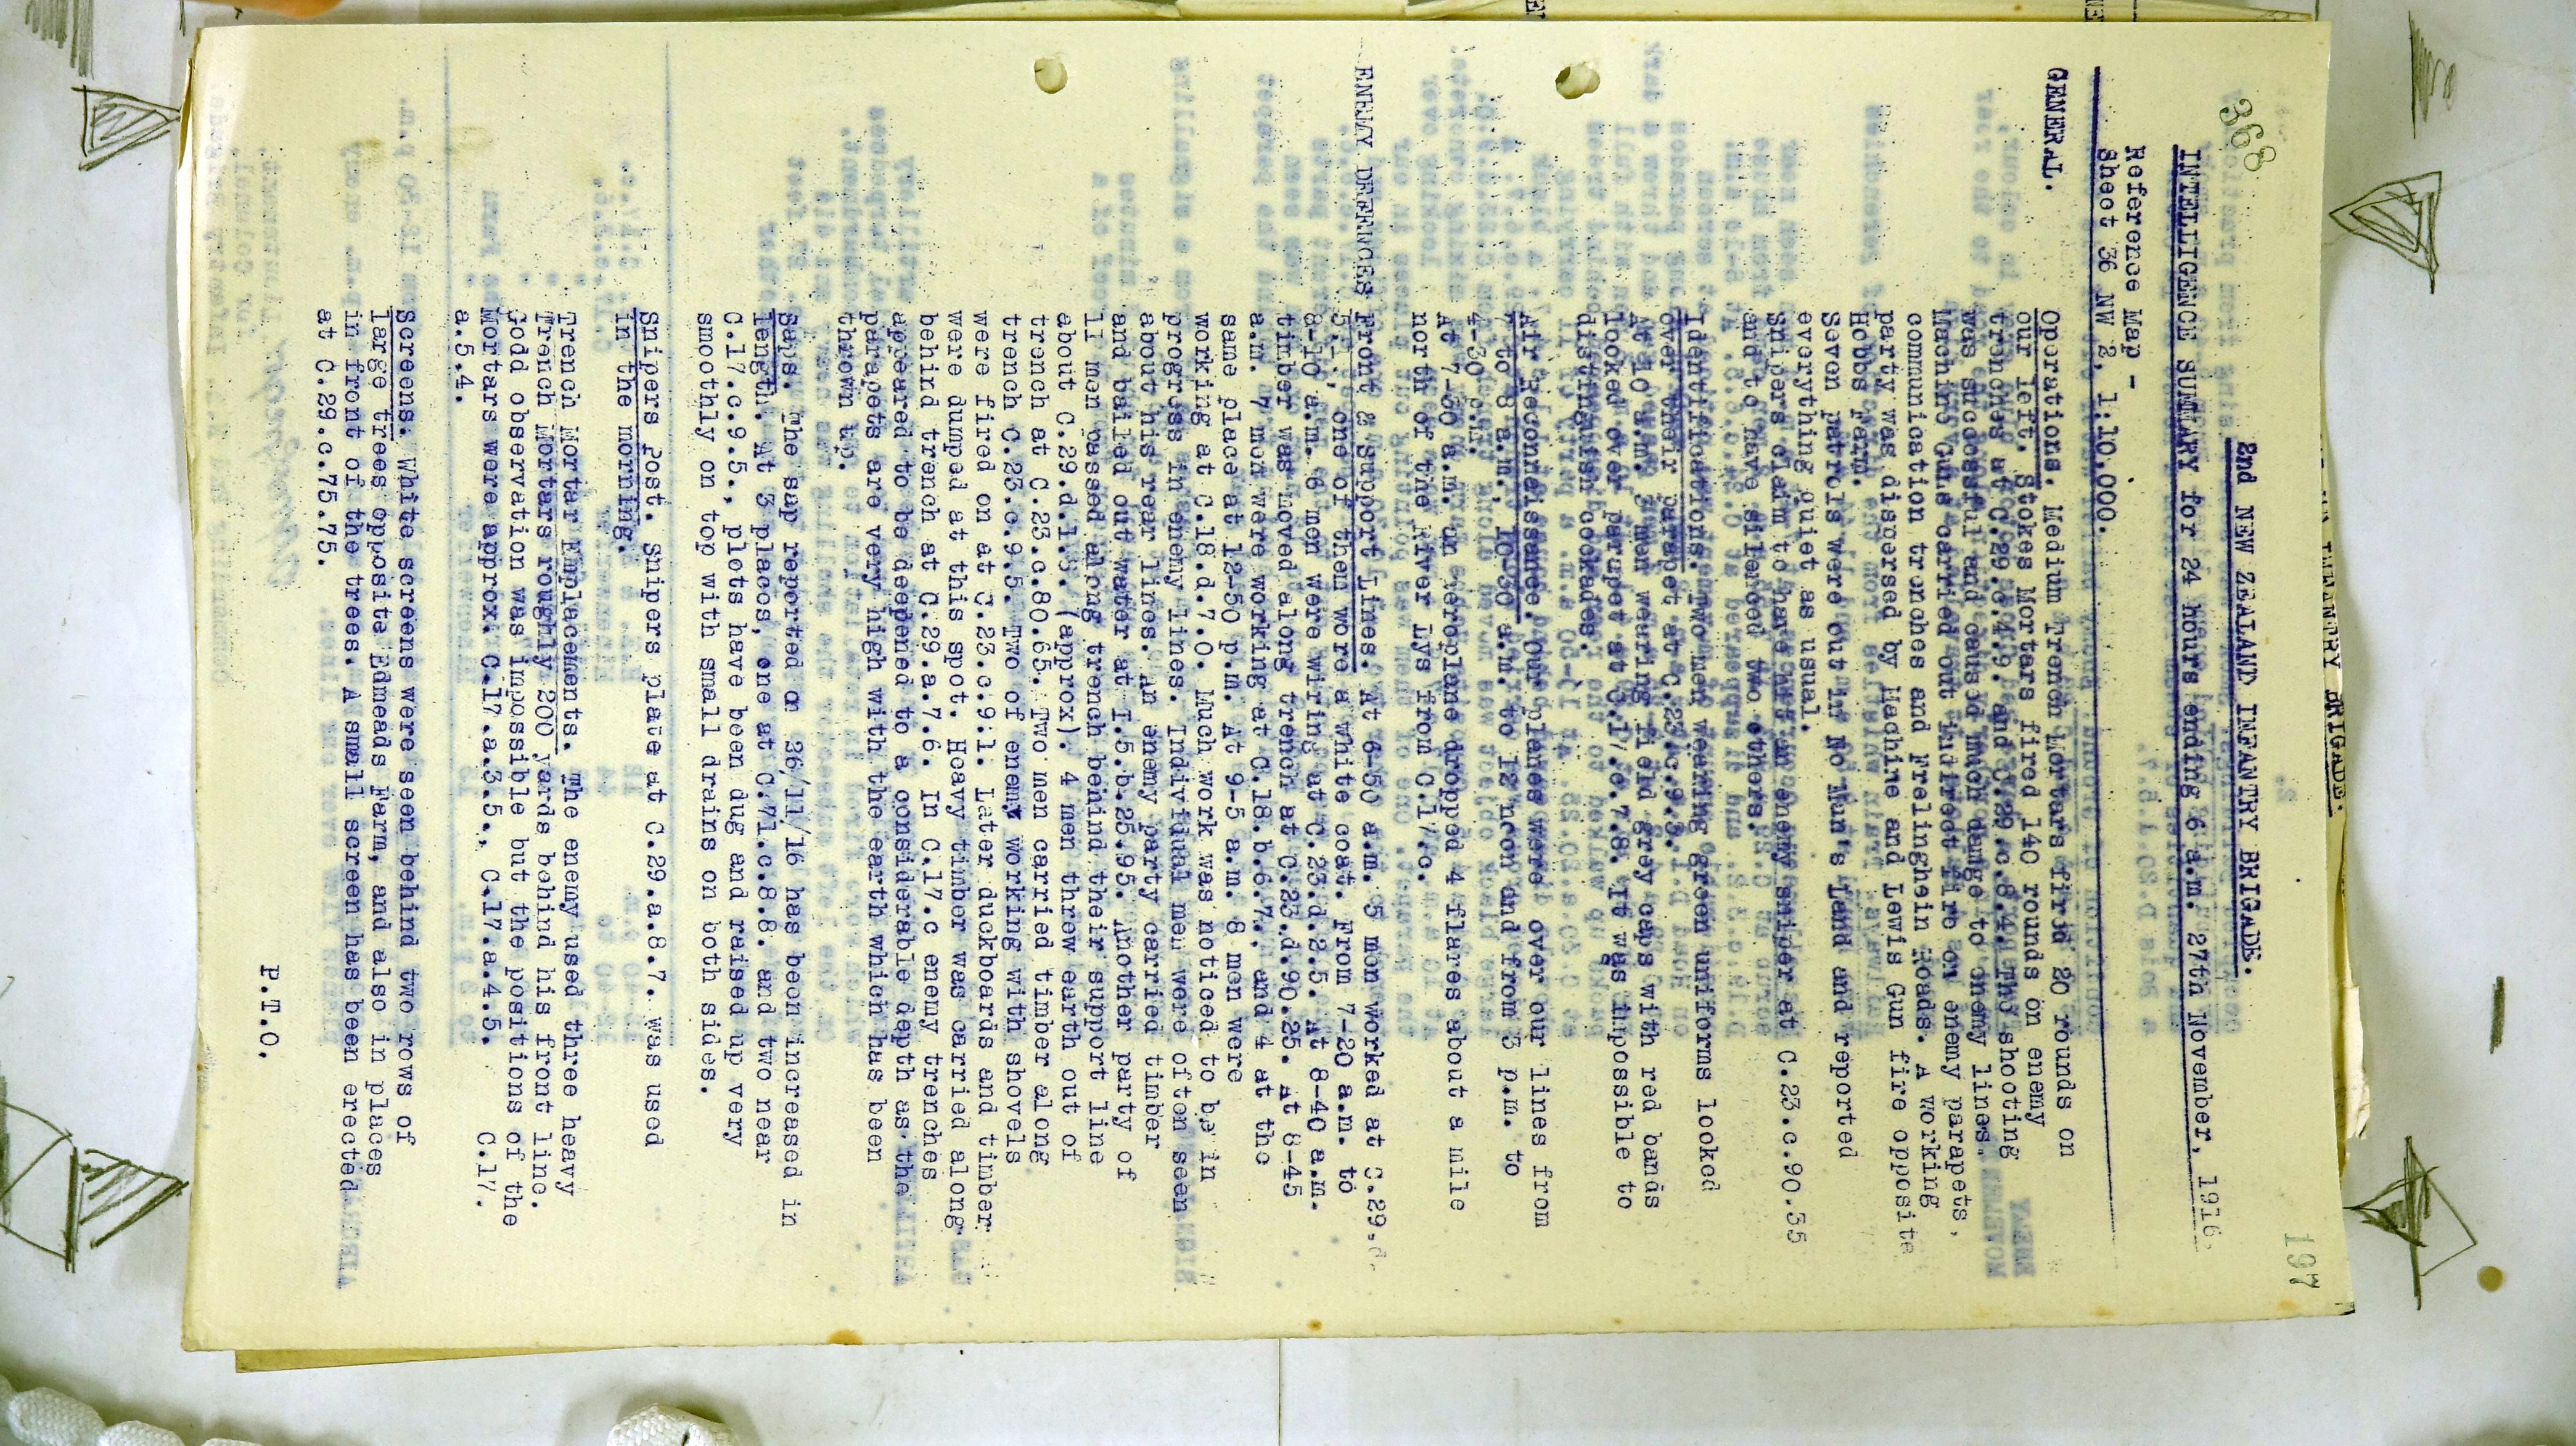 368
197
2nd NEW ZEALAND INFANTRY BRIGADE.
INTELLIGENCE SUMMARY for 24 hours ending 6 a.m. 27th November, 1916.
Reference Map -
Sheet 36 NW 2, 1:10,000.
GENERAL.
Operations. Medium Trench Mortars fired 20 rounds on
our left. Stokes Mortars fired 140 rounds on enemy
trenches at C.29.c.4.9. and C.29.c.8.4. The shooting
was successful and caused much damage to enemy lines.
Machine Guns carried out indirect fire on enemy parapets,
communication trenches and Frelinghein Roads. A working
party was dispersed by Machine and Lewis Gun fire opposite
Hobbs Farm.
Seven patrols were out in No Man's Land and reported
everything quiet as usual.
Snipers claim to have hit an enemy sniper at C.23.c.90.35
and to have silenced two others.
Identifications. Two men wearing green uniforms looked
over their parapet at C.23.c.9.3.
At 10 a.m. 3 men wearing field grey caps with red bands
looked over parapet at C.17.c.7.8. It was impossible to
distinguish cockades.
Air Reconnaissance. Our planes were over our lines from
7 to 8 a.m., 10-30 a.m. to 12 noon and from 3 p.m. to
4-30 p.m.
At 7-30 a.m. an aeroplane dropped 4 flares about a mile
north of the River Lys from C.17.c.
ENEMY DEFENCES Front & Support Lines. At 6-50 a.m. 5 men worked at C.29.d
5.-., one of them wore a white coat. From 7-20 a.m. to
8-10 a.m. 6 men were wiring at C.23.d.2.5. At 8-40 a.m.
timber was moved along trench at C.23.d.90.25. At 8-45
a.m. 7 men were working at C.18.b.6.7., and 4 at the
same place at 12-50 p.m. At 9-5 a.m. 8 men were
working at C.18.d.7.0. Much work was noticed to be in
progress in enemy lines. Individual men were often seen
about his rear lines. An enemy party carried timber
and bailed out water at I.5.b.25.95. Another party of
11 men passed along trench behind their support line
about C.29.d.1.3. (approx). 4 men threw earth out of
trench at C.23.c.80.65. Two men carried timber along
trench C.23.c.9.5. Two of enemy working with shovels
were fired on at C.23.c.9.1. Later duckboards and timber
were dumped at this spot. Heavy timber was carried along
behind trench at C.29.a.7.6. In C.17.c enemy trenches
appeared to be deepened to a considerable depth as the
parapets are very high with the earth which has been
thrown up.
Saps. The sap reported on 26/11/16 has been increased in
length. At 3 places, one at C.71.c.8.8. and two near
C.17.c.9.5., plots have been dug and raised up very
smoothly on top with small drains on both sides.
Snipers Post. Snipers plate at C.29.a.8.7. was used
in the morning.
Trench Mortar Emplacements. The enemy used three heavy
Trench Mortars roughly 200 yards behind his front line.
Good observation was impossible but the positions of the
Mortars were approx. C.17.a.3.5., C.17.a.4.5. C.17.
a.5.4.
Screens. White screens were seen behind two rows of
large trees opposite Edmeads Farm, and also in places
in front of the trees. A small screen has been erected
at C.29.c.75.75.
P.T.O.